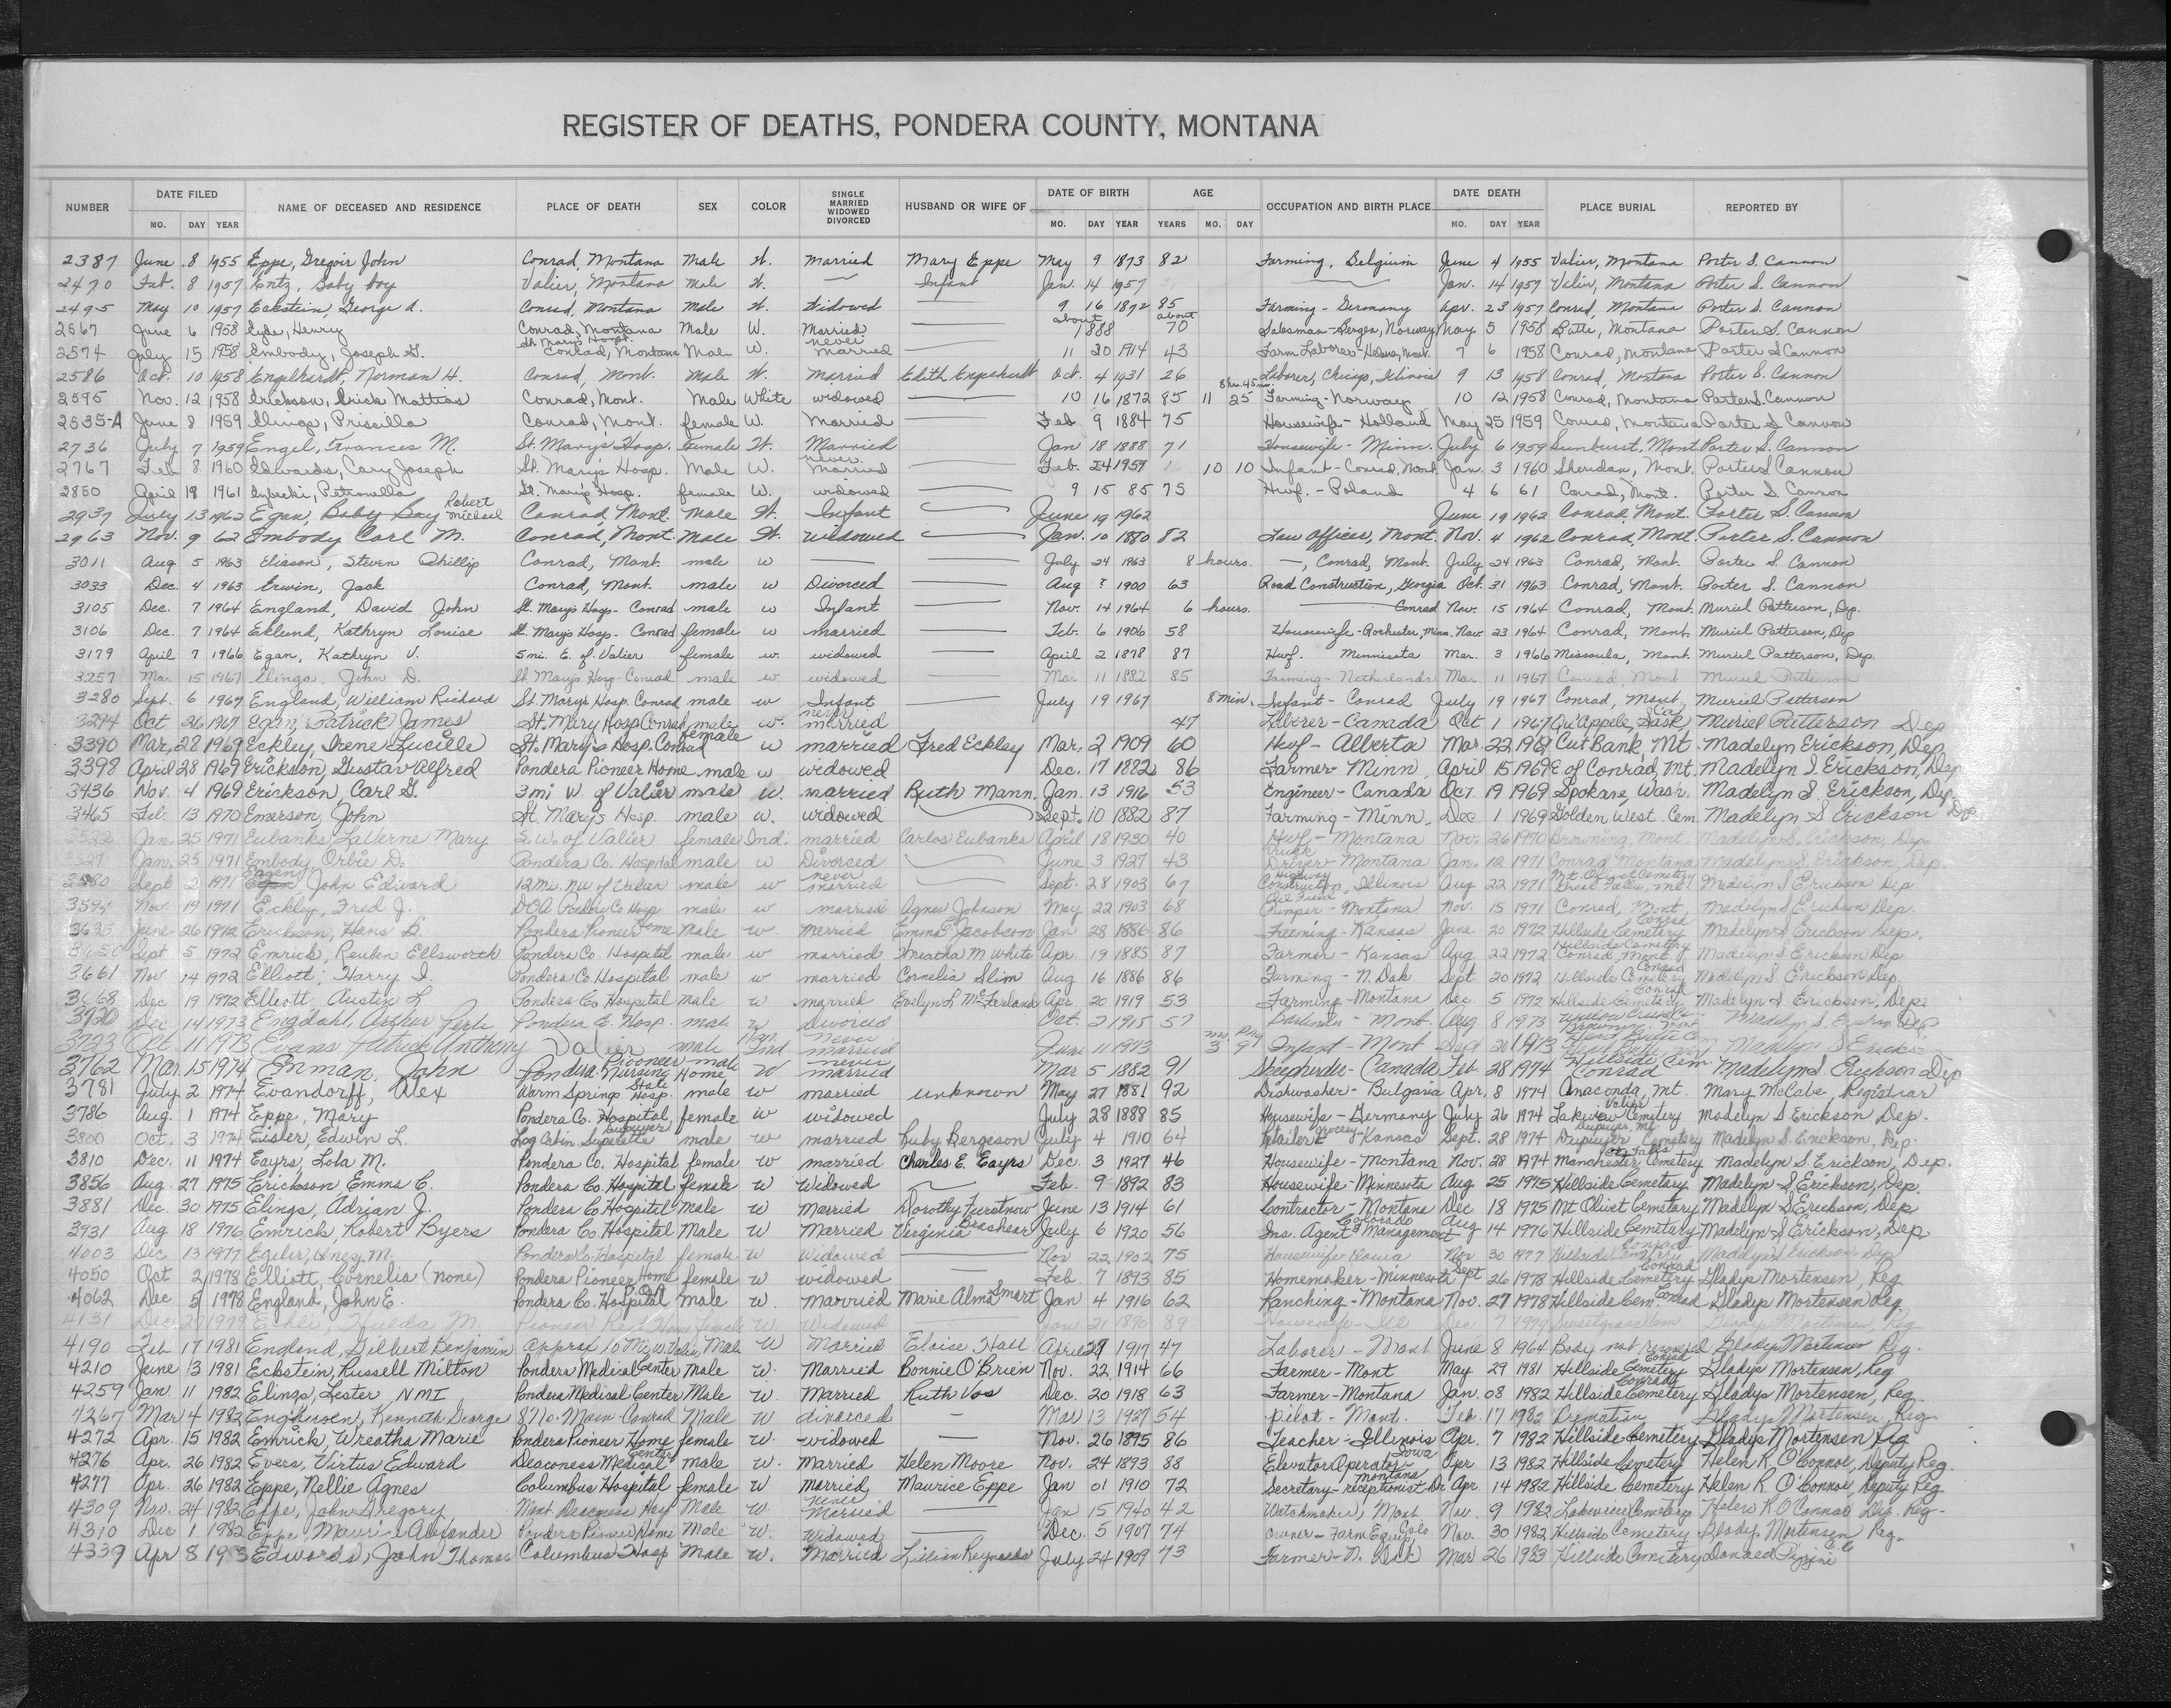 REGISTER OF DEATHS, PONDERA COUNTY, MONTANA
NUMBER DATE FILED NAME OF DECEASED AND RESIDENCE PLACE OF DEATH SEX COLOR SINGLE MARRIED WIDOWED DIVORCED HUSBAND OR WIFE OF DATE OF BIRTH AGE OCCUPATION AND BIRTH PLACE DATE DEATH PLACE BURIAL REPORTED BY
MO. DAY YEAR MO. DAY YEAR YEARS MO. DAY MO. DAY YEAR
2387 June 8 1955 Eppe, Gregoir John Conrad, Montana Male W. Married Mary Eppe May 9 1873 82 Farming, Belgium June 4 1955 Valier, Montana Porter S. Cannon
2470 Feb. 8 1957 Entz, Baby boy Valier, Montana Male W. — Infant Jan. 14 1957 — Jan. 14 1957 Valier, Montana Porter S. Cannon
2495 May 10 1957 Eckstein, George A. Conrad, Montana Male W. Widowed — 9 16 1872 85 Farming - Germany Apr. 23 1957 Conrad, Montana Porter S. Cannon
2567 June 6 1958 Eyde, Henry Conrad, Montana Male W. Married — about 1888 about 70 Salesman - Bergen, Norway May 5 1958 Butte, Montana Porter S. Cannon
2574 July 15 1958 Embody, Joseph G. St. Mary's Hosp. Conrad, Montana Male W. never Married — 11 20 1914 43 Farm Laborer - Helena, Mont. 7 6 1958 Conrad, Montana Porter S Cannon
2586 Oct. 10 1958 Engelhardt, Norman H. Conrad, Mont. Male W. Married Edith Engelhardt Oct. 4 1931 26 Laborer, Chicago, Illinois 9 13 1958 Conrad, Montana Porter S. Cannon
2595 Nov. 12 1958 Erickson, Erick Mattias Conrad, Mont. Male White widowed — 10 16 1872 85 11 25 8 hrs. 45 min. Farming - Norway 10 12 1958 Conrad, Montana Porter S. Cannon
2635-A June 8 1959 Elings, Priscilla Conrad, Mont. female W. Married — Feb 9 1884 75 Housewife - Holland May 25 1959 Conrad, Montana Porter S Cannon
2736 July 7 1959 Engel, Frances M. St. Mary's Hosp. Female W. Married — Jan 18 1888 71 Housewife - Minn. July 6 1959 Sunburst, Mont. Porter S. Cannon
2767 Feb 8 1960 Edwards, Cary Joseph St. Marys Hosp. Male W. never Married — Feb. 24 1959 10 10 Infant - Conrad, Mont. Jan. 3 1960 Sheridan, Mont. Porter S Cannon
2850 April 18 1961 Petronella St. Marys Hosp. female W. widowed — 9 15 85 75 Hwf. - Poland 4 6 61 Conrad, Mont. Porter S. Cannon
2937 July 13 1962 Egan, Baby Boy Robert Michael Conrad, Mont. Male W. Infant — June 19 1962 June 19 1962 Conrad, Mont. Porter S. Cannon
2963 Nov. 9 62 Embody Carl M. Conrad, Mont. Male W. widowed — Jan. 10 1880 82 Law Officer, Mont. Nov. 4 1962 Conrad, Mont. Porter S. Cannon
3011 Aug 5 1963 Eliason, Steven Phillip Conrad, Mont. male w — — July 24 1963 8 hours. —, Conrad, Mont. July 24 1963 Conrad, Mont. Porter S. Cannon
3033 Dec. 4 1963 Erwin, Jack Conrad, Mont. male w Divorced — Aug ? 1900 63 Road Construction, Georgia Oct. 31 1963 Conrad, Mont. Porter S. Cannon
3105 Dec. 7 1964 England, David John St. Mary's Hosp - Conrad male w Infant — Nov. 14 1964 6 hours. — Conrad Nov. 15 1964 Conrad, Mont. Muriel Patterson, Dep.
3106 Dec. 7 1964 Eklund, Kathryn Louise St. Marys Hosp - Conrad female w married — Feb. 6 1906 58 Housewife - Rochester, Minn. Nov. 23 1964 Conrad, Mont. Muriel Patterson, Dep
3179 April 7 1966 Egan, Kathryn V. 5 mi. E. of Valier female w. widowed — April 2 1878 87 Hwf. Minnesota Mar. 3 1966 Missoula, Mont. Muriel Patterson, Dep.
3257 Mar 15 1967 Elings, John D. St. Marys Hosp - Conrad male w widowed — Mar 11 1882 85 Farming - Netherlands Mar 11 1967 Conrad, Mont Muriel Patterson
3280 Sept. 6 1967 England, William Richard St. Marys Hosp. Conrad male w Infant July 19 1967 8 min. Infant - Conrad July 19 1967 Conrad, Mont, Muriel Patterson
3294 Oct 26 1967 Egan, Patrick James St. Mary Hosp Conrad, male w. never married 47 Laborer - Canada Oct 1 1967 Qu'Appele, Sask Ca. Muriel Patterson Dep
3390 Mar, 28 1969 Eckley, Irene Lucille St. Mary's Hosp. Conrad female w married Fred Eckley Mar. 2 1909 60 Hwf - Alberta Mar. 22 1969 Cut Bank, Mt. Madelyn Erickson, Dep
3398 April 28 1969 Erickson, Gustav Alfred Pondera Pioneer Home male w widowed Dec. 17 1882 86 Farmer - Minn April 15 1969 E of Conrad, Mt. Madelyn S. Erickson, Dep
3436 Nov. 4 1969 Erickson, Carl G. 3 mi W. of Valier male w. married Ruth Mann. Jan. 13 1916 53 Engineer - Canada Oct. 19 1969 Spokane, Wash. Madelyn S. Erickson, Dep.
3465 Feb. 13 1970 Emerson, John St. Mary's Hosp. male w. widowed — Sept. 10 1882 87 Farming - Minn. Dec. 1 1969 Golden West Cem. Madelyn S Erickson Dep
3522 Jan. 25 1971 Eubanks, LaVerne Mary S.W. of Valier female Ind. married Carlos Eubanks April 18 1930 40 Hwf - Montana Nov. 26 1970 Browning, Mont. Madelyn S. Erickson, Dep.
3527 Jan. 25 1971 Embody Orbie D. Pondera Co. Hospital male w Divorced — June 3 1927 43 Truck Driver - Montana Jan. 12 1971 Conrad Montana Madelyn S. Erickson, Dep.
3580 Sept 2 1971 Eagen, John Edward 12 Mi. NW of Valier male w never married — Sept. 28 1903 67 Highway Construction, Illinois Aug 22 1971 Mt Olivet Cemetery Great Falls, Mt. Madelyn S Erickson Dep.
3594 Nov 19 1971 Eckley, Fred J. DOA Pondera Co Hosp male w married Agnes Johnson May 22 1903 68 Oil Field Pumper - Montana Nov. 15 1971 Conrad, Mont Madelyn S Erickson Dep.
3635 June 26 1972 Erickson, Hans L. Pondera Pioneer Home Male w Married Emma C. Jacobson Jan 28 1886 86 Farming - Kansas June 20 1972 Hillside Cemetery Conrad Madelyn S Erickson Dep.
3650 Sept 5 1972 Emrick, Reuben Ellsworth Pondera Co. Hospital male w married Wreatha M White Apr. 19 1885 87 Farmer - Kansas Aug 22 1972 Hillside Cemetery Conrad, Mont Madelyn S Erickson Dep
3661 Nov 14 1972 Elliott, Harry I Pondera Co. Hospital male w married Cornelia Slim Aug 16 1886 86 Farming - N. Dak Sept 20 1972 Hillside Cemetery Conrad Madelyn S Erickson Dep,
3668 Dec 19 1972 Elliott Austin L Pondera Co Hospital male w married Evelyn L. McFarland Apr. 20 1919 53 Farming - Montana Dec. 5 1972 Hillside Cemetery Conrad Madelyn S Erickson, Dep.
3720 Dec 14 1973 Engdahl, Arthur Pondera C. Hosp. male w Divorced Oct. 2 1915 57 Bartender - Mont. Aug 8 1973 Madelyn S. Erickson Dep
3723 Oct 11 1973 Evans Patrick Anthony Valier male Ind never married June 11 1973 mo. 3 Day 9 Infant - Mont Sept 20 1973 Madelyn S Erickson
3762 Mar. 15 1974 Enman, John Pondera Pioneer Nursing Home male W never married Mar 5 1882 91 Sheepherder - Canada Feb. 28 1974 Hillside Cem. Conrad Madelyn S. Erickson Dep
3781 July 2 1974 Evandorff, Alex Warm Springs State Hosp. male w married unknown May 27 1881 92 Dishwasher - Bulgaria Apr. 8 1974 Anaconda, Mt. Mary McCabe, Registrar
3786 Aug. 1 1974 Eppe, Mary Pondera Co. Hospital, female w widowed July 28 1888 85 Housewife - Germany July 26 1974 Lakeview Cemetery Valier Madelyn S Erickson Dep.
3800 Oct. 3 1974 Eisler, Edwin L. Log Cabin Superette Dupuyer male w married Ruby Bergeson July 4 1910 64 Retailer grocery - Kansas Sept. 28 1974 Dupuyer Cemetery Dupuyer, Mt. Madelyn S. Erickson, Dep.
3810 Dec. 11 1974 Eayrs, Lola M. Pondera Co. Hospital female w married Charles E. Eayrs Dec. 3 1927 46 Housewife - Montana Nov. 28 1974 Manchester Cemetery Gt. Falls Madelyn S. Erickson, Dep.
3856 Aug. 27 1975 Erickson Emma C. Pondera Co. Hospital female w Widowed — Feb. 9 1892 83 Housewife - Minnesota Aug 25 1975 Hillside Cemetery Madelyn S Erickson, Dep.
3881 Dec. 30 1975 Elings, Adrian J. Pondera Co Hospital Male w Married Dorothy Fuerstnow June 13 1914 61 Contractor - Montana Dec 18 1975 Mt Olivet Cemetary Madelyn S Erickson, Dep
3931 Aug 18 1976 Emrick, Robert Byers Pondera Co Hospital Male w Married Virginia Brashear July 6 1920 56 Ins. Agent & Management Colorado Aug 14 1976 Hillside Cemetary Madelyn S Erickson, Dep
4003 Dec. 13 1977 Egeler, Inez M. Pondera Co Hospital female w Widowed — Nov 22 1902 75 Housewife Iowa Nov 30 1977 Hillside Cemetery Conrad Madelyn S Erickson, Dep
4050 Oct 2 1978 Elliott, Cornelia (none) Pondera Pioneer Home female w widowed — Feb. 7 1893 85 Homemaker - Minnesota Sept 26 1978 Hillside Cemetery Conrad Gladys Mortensen, Reg
4062 Dec 5 1978 England, John E. Pondera Co. Hospital DOA male w. married Marie Alma Smart Jan 4 1916 62 Ranching - Montana Nov. 27 1978 Hillside Cem. Conrad Gladys Mortensen Reg
4131 Dec 1979 Hulda M. Pioneer Rest Home female w Widowed — Jan 21 1890 89 Housewife - Ill Dec 7 1979 Sweetgrass Gladys Mortensen, Reg
4190 Feb 17 1981 England, Gilbert Benjamin approx 10 Mi. W. Valier, Male W Married Eloise Hall April 27 1917 47 Laborer - Mont June 8 1964 Body not recovered Gladys Mortensen Reg.
4210 June 3 1981 Eckstein, Russell Milton Pondera Medical Center Male w. Married Bonnie O'Brien Nov. 22 1914 66 Farmer - Mont May 29 1981 Hillside Cemetery Conrad Gladys Mortensen, Reg
4259 Jan. 11 1982 Elings, Lester NMI Pondera Medical Center Male w. Married Ruth Vos Dec. 20 1918 63 Farmer - Montana Jan. 08 1982 Hillside Cemetery Conrad Gladys Mortensen, Reg.
4267 Mar 4 1982 Kenneth George 8 No. Main Conrad Male w divorced — Mar 13 1927 54 pilot - Mont. Feb. 17 1982 Cremation Gladys Mortensen, Reg.
4272 Apr. 15 1982 Emrick, Wreatha Marie Pondera Pioneer Home female w. widowed — Nov. 26 1895 86 Teacher - Illinois Apr. 7 1982 Hillside Cemetery Gladys Mortensen Reg
4276 Apr. 26 1982 Evers, Virtus Edward Deaconess Medical Center male w. Married Helen Moore Nov. 24 1893 88 Elevator Operator - Iowa Apr. 13 1982 Hillside Cemetery Helen R. O'Connor, Deputy Reg.
4277 Apr. 26 1982 Eppe, Nellie Agnes Columbus Hospital female w Married, Maurice Eppe Jan 01 1910 72 Secretary - receptionist Dr. Montana Apr. 14 1982 Hillside Cemetery Helen R. O'Connor, Deputy Reg.
4309 Nov. 24 1982 Eppe, John Gregory Mont Deaconess Hosp Male w. never Married — Jan 15 1940 42 Watchmaker, Mont Nov. 9 1982 Lakeview Cemetery Helen R O'Connor Dep. Reg.
4310 Dec 1 1982 Eppe Maurice Alexander Pondera Pioneer Home Male w. Widowed — Dec. 5 1907 74 owner - Farm Equip, Colo Nov. 30 1982 Hillside Cemetery Gladys Mortensen Reg.
4339 Apr 8 1983 Edwards, John Thomas Columbus Hosp Male w. Married Lillian Reynolds July 24 1909 73 Farmer - N. Dak Mar 26 1983 Hillside Cemetery Donald